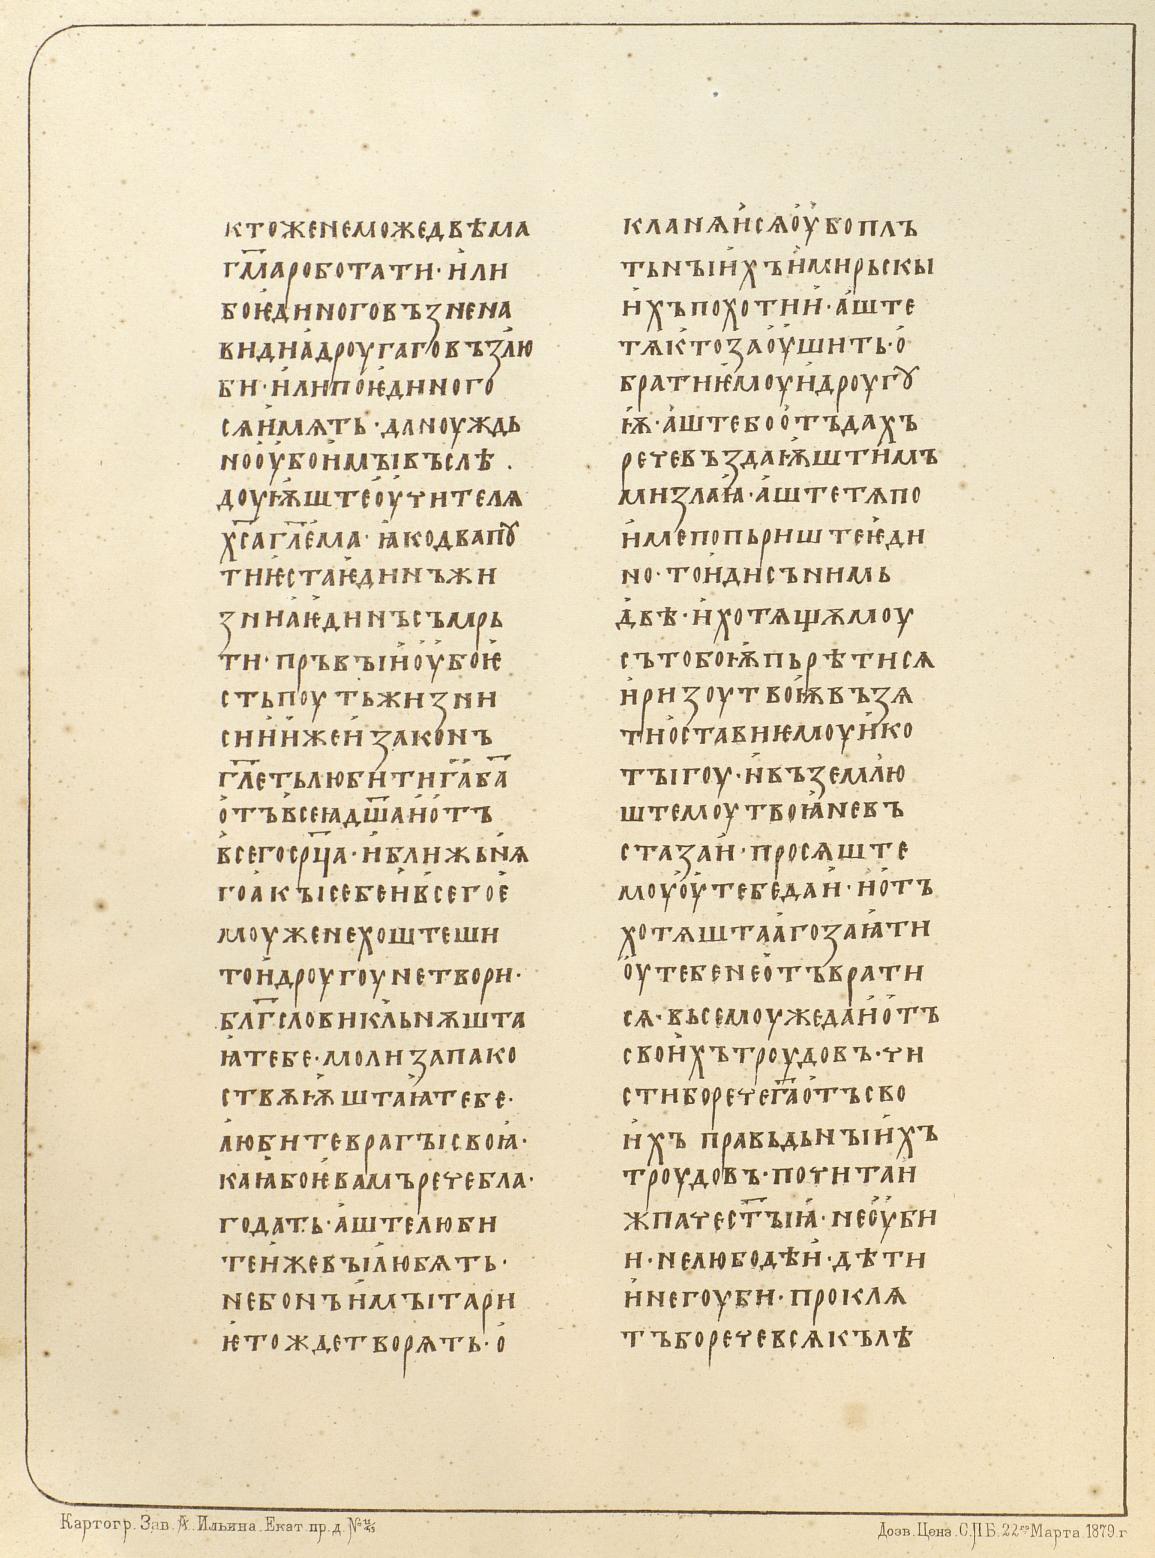 КТОЖЕНЕМОЖЕДВѢМА
ГМ҃АРОБОТАТИ·ИЛИ
БОѤДИНОГОВЪЗНЕНА
ВИДИАДРОУГАГОВЪЗЛЮ
БИ·ИЛИПОѤДИНОГО
СѦИМѦТЬ·ДАНОУЖДЬ
НООУБОИМЪІВЪСЛѢ.
ДОУѬШТЕОУЧИТЕЛѦ
ХС҃АГЛ҃ЕМА·ꙖКОДВАПꙊ
ТИѤСТАѤДИНЪЖИ
ЗНИАѤДИНЪСЪМРЬ
ТИ·ПРЪВЪІИОУБОѤ
СТЬПОУТЬЖИЗНИ
СИИИЖЕИЗАКОНЪ
ГЛ҃ЕТЬЛЮБИТИГ҃АБ҃А
ОТЪВСЕꙖДШ҃АИОТЪ
ВСЕГОСРЦ҃А·ИБЛИЖЬНѦ
ГОАКЪІСЕБЕИВСЕГОЕ
МОУЖЕНЕХОШТЕШИ
ТОИДРОУГОУНЕТВОРИ·
БЛГ҃СЛОВИКЛЬНѪШТА
ꙖТЕБЕ·МОЛИЗАПАКО
СТВѪѬШТАꙖТЕБЕ·
ЛЮБИТЕВРАГЪІСВОꙖ·
КАꙖБОѤВАМЪРЕЧЕБЛА·
ГОДАТЬ·АШТЕЛЮБИ
ТЕИЖЕВЪІЛЮБѦТЬ·
НЕБОНЪИМЪІТАРИ
ѤТОЖДЕТВОРѦТЬ·О
КЛАНѦИСѦОУБОПЛЪ
ТЬНЪІИХЪИМИРЬСКЫ
ИХЪПОХОТИИ·АШТЕ
ТѦКТОЗАОУШИТЬ·О
БРАТИѤМОУИДРОУГꙊ
ѬѪ·АШТЕБООТЪДАХЪ
РЕЧЕВЪЗДАѬШТИМЪ
МИЗЛАꙖ·АШТЕТѦПО
ИМЕПОПЬРИШТЕѤДИ
НО·ТОИДИСЪНИМЬ
ДВѢ·ИХОТѦЩѪМОУ
СЪТОБОѬПЬРѢТИСѦ
ИРИЗОУТВОѬВЪЗѦ
ТИОСТАВИѤМОУИКО
ТЪІГОУ·ИВЪЗЕМЛЮ
ШТЕМОУТВОꙖНЕВЪ
СТАЗАИ·ПРОСѦШТЕ
МОУОУТЕБЕДАИ·ИОТЪ
ХОТѦШТААГОЗАꙖТИ
ОУТЕБЕНЕОТЪВРАТИ
СѦ·ВЬСЕМОУЖЕДАИОТЪ
СВОИХЪТРОУДОВЪ·ЧИ
СТИБОРЕЧЕГ҃АОТЪСВО
ИХЪ ПРАВЬДЬНЪІИХЪ
ТРОУДОВЪ·ПОЧИТАИ
ЖПАЧЕСТ҃ЪІꙖ·НЕОУБИ
И·НЕЛЮБОДѢИ·ДѢТИ
ИНЕГОУБИ·ПРОКЛѦ
ТЪБОРЕЧЕВСѦКЪЛѢ
Картогр. Зав. А. Ильина. Екат. пр. д.
Дозв. Цена. С.П.Б. 22го Марта 1879 г.